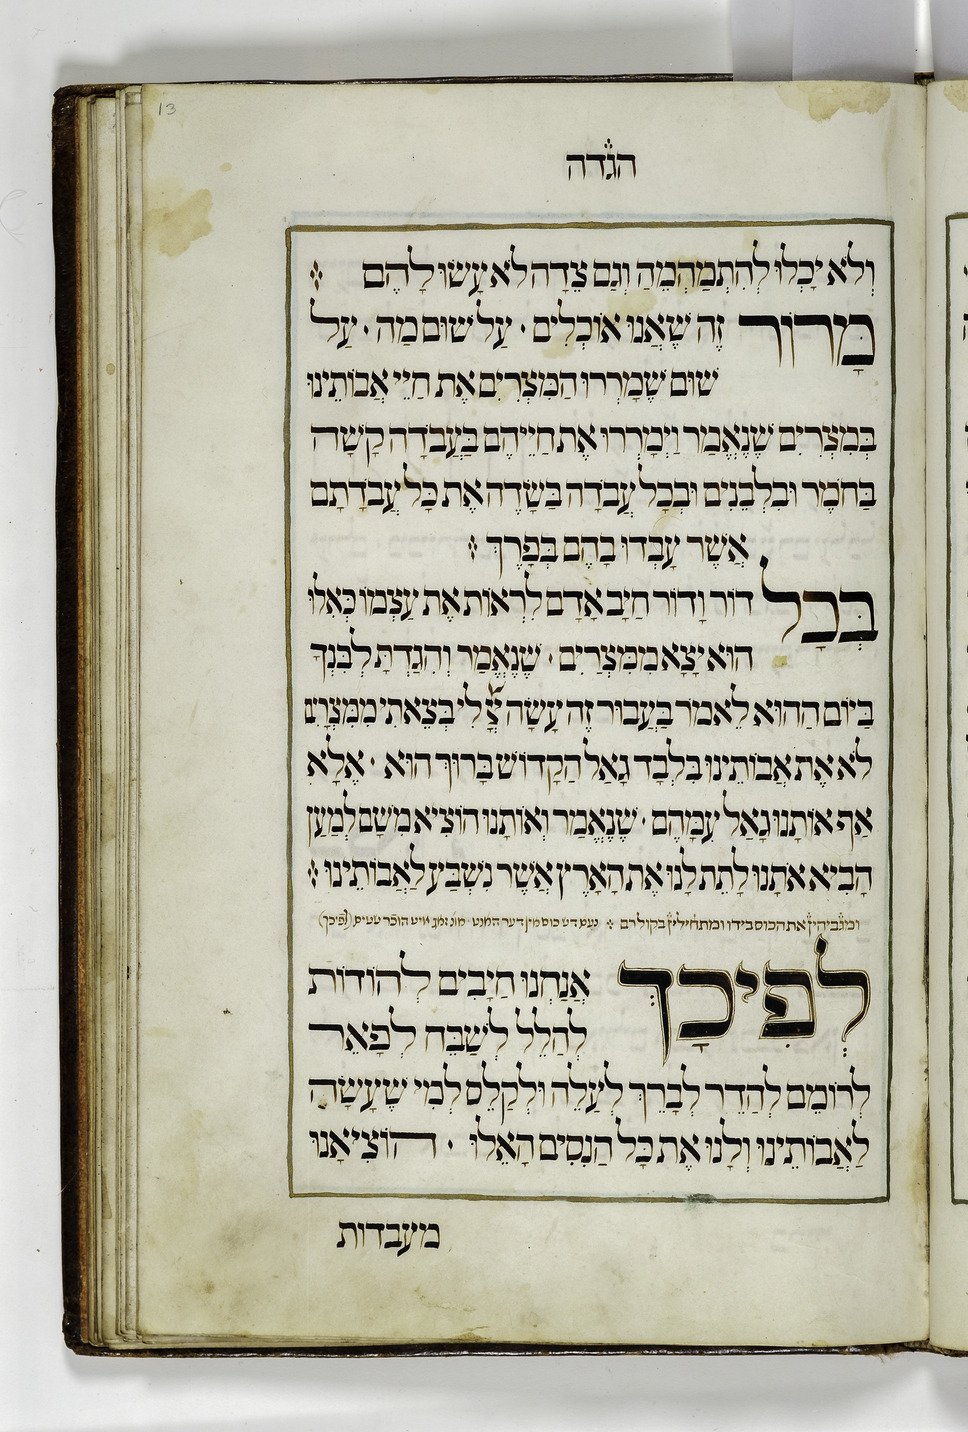 13
הגדה
וְלֹא יָכְלוּ לְהִתְמַהְמֵהַ וְגַם צֵדָה לֹא עָשׂוּ לָהֶם
מָרוֹר זֶה שֶׁאֲנוּ אוֹכְלִים · עַל שׁוּם מַה · עַל
שׁוּם שֶׁמָרְרוּ הַמִּצְרִים אֶת חַיֵּי אֲבוֹתֵינוּ
בְּמִצְרִים שֶׁנֶּאֱמַר וַיְמָרְרוּ אֶת חַיֵּיהֶם בַּעֲבֹדָה קָשָׁה
בַּחֹמֶר וּבִלְבֵנִים וּבְכָל עֲבֹדָה בַּשָּׂדֶה אֶת כָּל עֲבֹדָתָם
אֲשֶׁר עָבְדוּ בָהֶם בְּפָרֶךְ
בְּכָל דוֹר וָדוֹר חַיָּב אָדָם לִרְאוֹת אֶת עַצְמוֹ כְּאִלּוּ
הוּא יָצָא מִמִּצְרַיִם · שֶׁנֶּאֱמַר וְהִגַּדְתָּ לְבִּנְךָ
בַּיּוֹם הַהוּא לֵאמֹר בַּעֲבוּר זֶה עָשָׂה לִי בְּצֵאתִי מִמִּצְרָיִם
לֹא אֶת אֲבוֹתֵינוּ בִּלְבָד גָּאַל הַקָּדוֹשׁ בָּרוּךְ הוּא · אֶלָּא
אַף אוֹתָנוּ גָאַל עִמָּהֶם · שֶׁנֶּאֱמַר וְאוֹתָנוּ הוֹצִיא מִשָּׁם לְמַעַן
הָבִיא אֹתָנוּ לָתֶת לָנוּ אֶת הָאָרֶץ אֲשֶׁר נִשְׁבַּע לַאֲבוֹתֵינוּ
ומגביהין את הכוס בידו ומתחילין בקול רם
לְפִיכָךְ אֲנַחְנוּ חַיָבִים לְהוֹדוֹת
לְהַלֵל לְשַׁבֵּחַ לְפָאֵר
לְרוֹמֵם לְהַדֵר לְבָרֵךְ לְעַלֵה וּלְקַלֵס לְמִי שֶׁעָשָׂה
לַאֲבוֹתֵינוּ וְלָנוּ אֶת כָּל הַנִסִים הָאֵלוּ · הוֹצִיאָנוּ
מעבדות